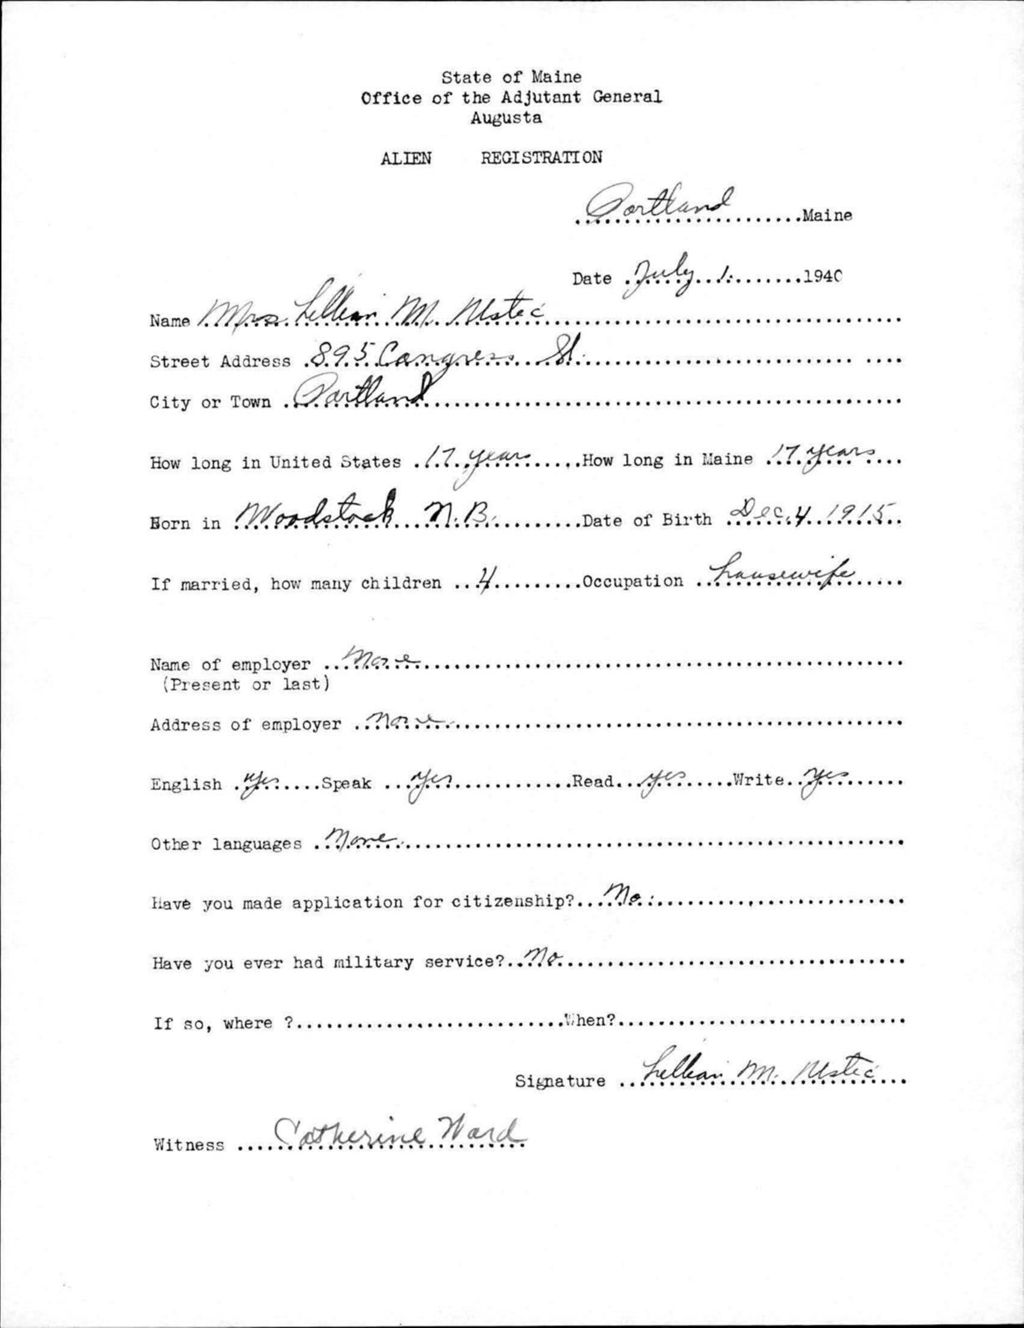 State of Maine
Office of the Adjutant General
Augusta
ALIEN REGISTRATION
Portland Maine
Date July 1. 1940
Name Mrs. Lillian M.
Street Address 895 Congress St.
City or Town Portland
How long in United States 17 years How long in Maine 17 years
Born in Woodstock N.B. Date of Birth Dec. 4 1915
If married, how many children 4 Occupation housewife
Name of employer None
(Present or last)
Address of employer None
English Yes Speak Yes Read yes Write Yes
Other languages None
Have you made application for citizenship? No.
Have you ever had military service? No
If so, where ? When?
Signature Lillian M.
Witness Catherine Ward